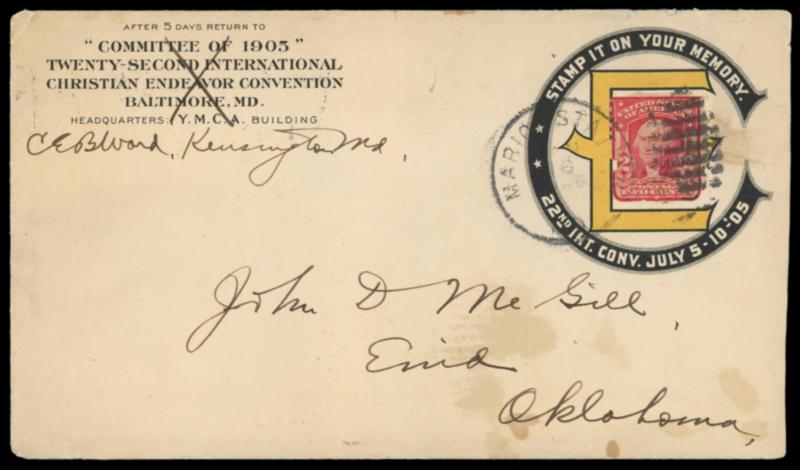 AFTER 5 DAYS RETURN TO
"COMMITTEE OF 1905"
TWENTY-SECOND INTERNATIONAL
CHRISTIAN ENDEAVOR CONVENTION
BALTIMORE, MD.
HEADQUARTERS: Y.M.C.A. BUILDING
C E B Ward, Kensington Md,
STAMP IT ON YOUR MEMORY.
22ND INT. CONV. JULY 5-10-'05
UNITED STATES
OF AMERICA
2
POSTAGE
TWO CENTS
STA
John D McGill,
Enid
Oklahoma,